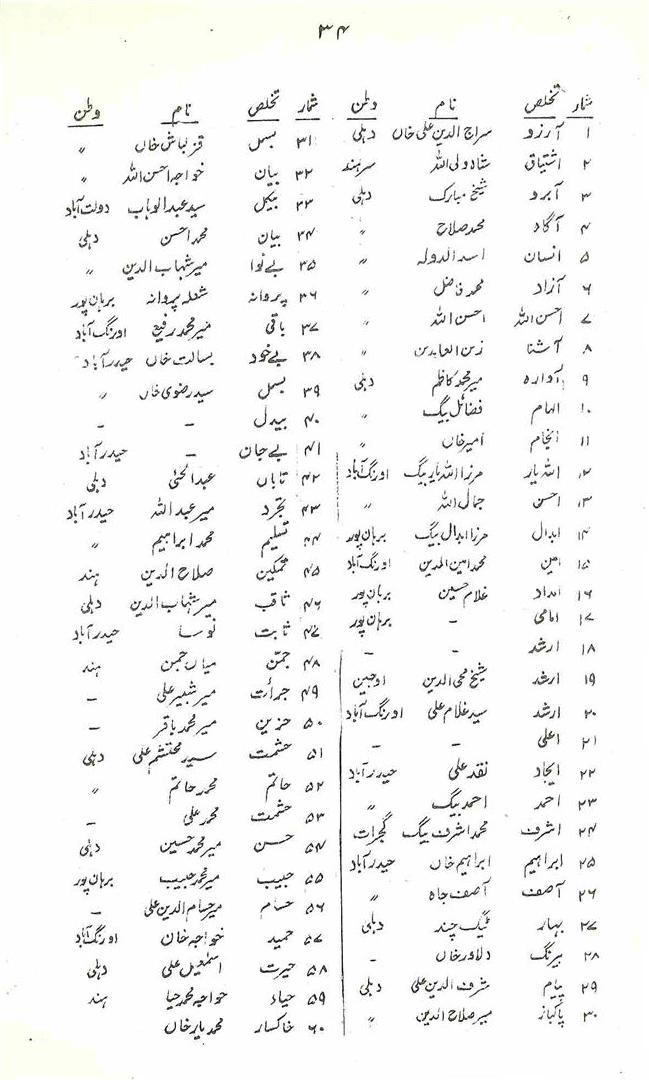 ۳۴
شمار تخلص نام وطن
۱ آرزو سراج الدین علی خاں دہلی
۲ اشتیاق شاہ ولی اللہ سرہند
۳ آبرو شیخ مبارک دہلی
۴ آگاہ محمد صلاح "
۵ انسان اسد الدولہ "
۶ آزاد محمد فاضل "
۷ احسن اللہ احسن اللہ "
۸ آشنا زین العابدین "
۹ آوارہ میر محمد کاظم دہلی
۱۰ الہام فضائل بیگ "
۱۱ انجام امیر خاں "
۱۲ اللہ یار مرزا اللہ یار بیگ اورنگ آباد
۱۳ احسن جمال اللہ "
۱۴ ابدال مرزا ابدال بیگ برہان پور
۱۵ امین محمد امین الدین اورنگ آباد
۱۶ امداد غلام حسین برہان پور
۱۷ امامی – برہان پور
۱۸ ارشد – –
۱۹ ارشد شیخ محی الدین اوجین
۲۰ ارشد سید غلام علی اورنگ آباد
۲۱ اعلی – –
۲۲ ایجاد نقد علی حیدر آباد
۲۳ احمد احمد بیگ "
۲۴ اشرف محمد اشرف بیگ گجرات
۲۵ ابراہیم ابراہیم خاں حیدر آباد
۲۶ آصف آصف جاہ "
۲۷ بہار ٹیک چند دہلی
۲۸ بیرنگ دلاور خاں –
۲۹ پیام شرف الدین علی دہلی
۳۰ پاکباز میر صلاح الدین "
شمار تخلص نام وطن
۳۱ بسمل قزلباش خاں "
۳۲ بیان خواجہ احسن اللہ "
۳۳ بیکل سید عبدالوہاب دولت آباد
۳۴ بیان محمد احسن دہلی
۳۵ بے نوا میر شہاب الدین "
۳۶ پروانہ شعلہ پروانہ برہان پور
۳۷ باقی میر محمد رفیع اورنگ آباد
۳۸ بے خود بسالت خاں حیدر آباد
۳۹ بسمل سید رضوی خاں "
۴۰ بیدل – –
۴۱ بے جان – حیدر آباد
۴۲ تاباں عبدالحئی دہلی
۴۳ تجرد میر عبد اللہ حیدر آباد
۴۴ تسلیم محمد ابراہیم "
۴۵ تمکین صلاح الدین ہند
۴۶ ثاقب میر شہاب الدین دہلی
۴۷ ثابت حیدر آباد
۴۸ جمن میاں جمن ہند
۴۹ جرأت میر شبیر علی –
۵۰ حزین میر محمد باقر –
۵۱ حشمت سید محتشم علی دہلی
۵۲ حاتم محمد حاتم "
۵۳ حشمت محمد علی –
۵۴ حسن میر محمد حسین دہلی
۵۵ حبیب میر محمد حبیب برہان پور
۵۶ حسام میر حسام الدین علی –
۵۷ حمید خواجہ خان اورنگ آباد
۵۸ حیرت اسمعیل علی دہلی
۵۹ حیاء خواجہ محمد حیا ہند
۶۰ خاکسار محمد یار خاں